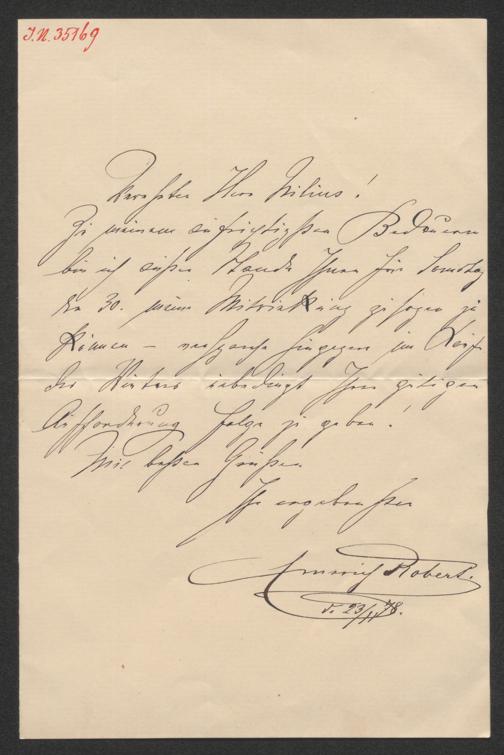 I.N. 35169
Verehrter Herr Nilius!
Zu meinem aufrichtigsten Bedauern
bin ich außer Stande Ihnen für Samstag
den 30. meine Mitwirkung zusagen zu
können – verspreche hingegen im Laufe
des Winters unbedingt Ihrer gütigen
Aufforderung Folge zu geben!
Mit besten Grüßen
Ihr ergebenster
Emerich Robert.
d. 23/11 78.